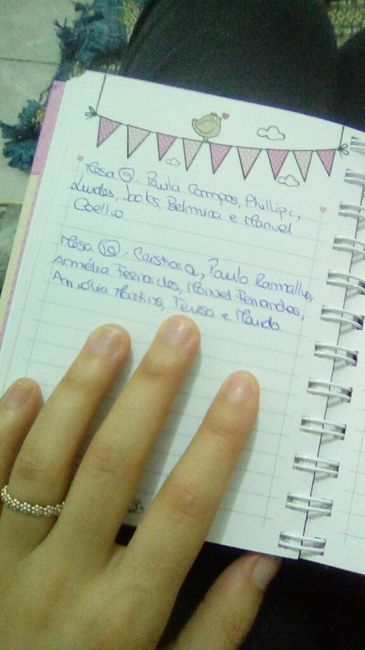 Mesa ⑨ - Paula Campos, Phillipe,
Lurdes, João, Belmira e Manuel
Coelho
Mesa ⑩ - Cristiana, Paulo Ramalho,
Armélia Fernandes, Manuel Fernandes,
Martins, Teresa e Marido